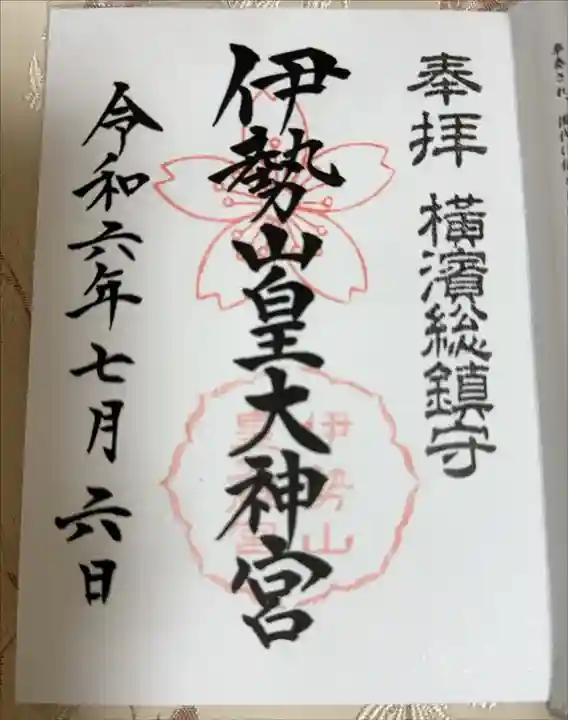 奉拝
横濱総鎮守
伊勢山皇大神宮
伊勢山
皇大神宮
令和六年七月六日